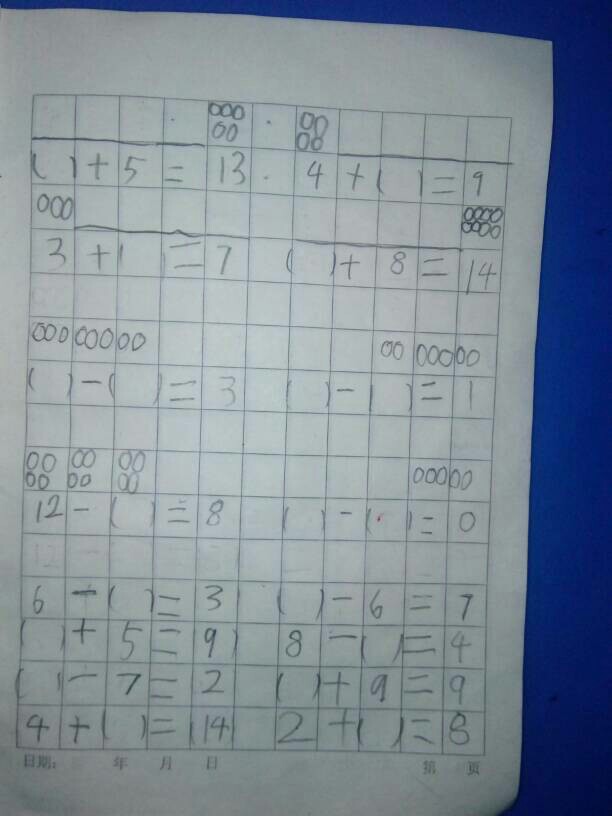 ( ) + 5 = 13 . 4 + ( ) = 9
3 + ( ) = 7 ( ) + 8 = 14
( ) - ( ) = 3 ( ) - ( ) = 1
12 - ( ) = 8 ( ) - ( ) = 0
6 - ( ) = 3 ( ) - 6 = 7
( ) + 5 = 9 8 - ( ) = 4
( ) - 7 = 2 ( ) + 9 = 9
4 + ( ) = 14 2 + ( ) = 8
日期: 年 月 日 第 页